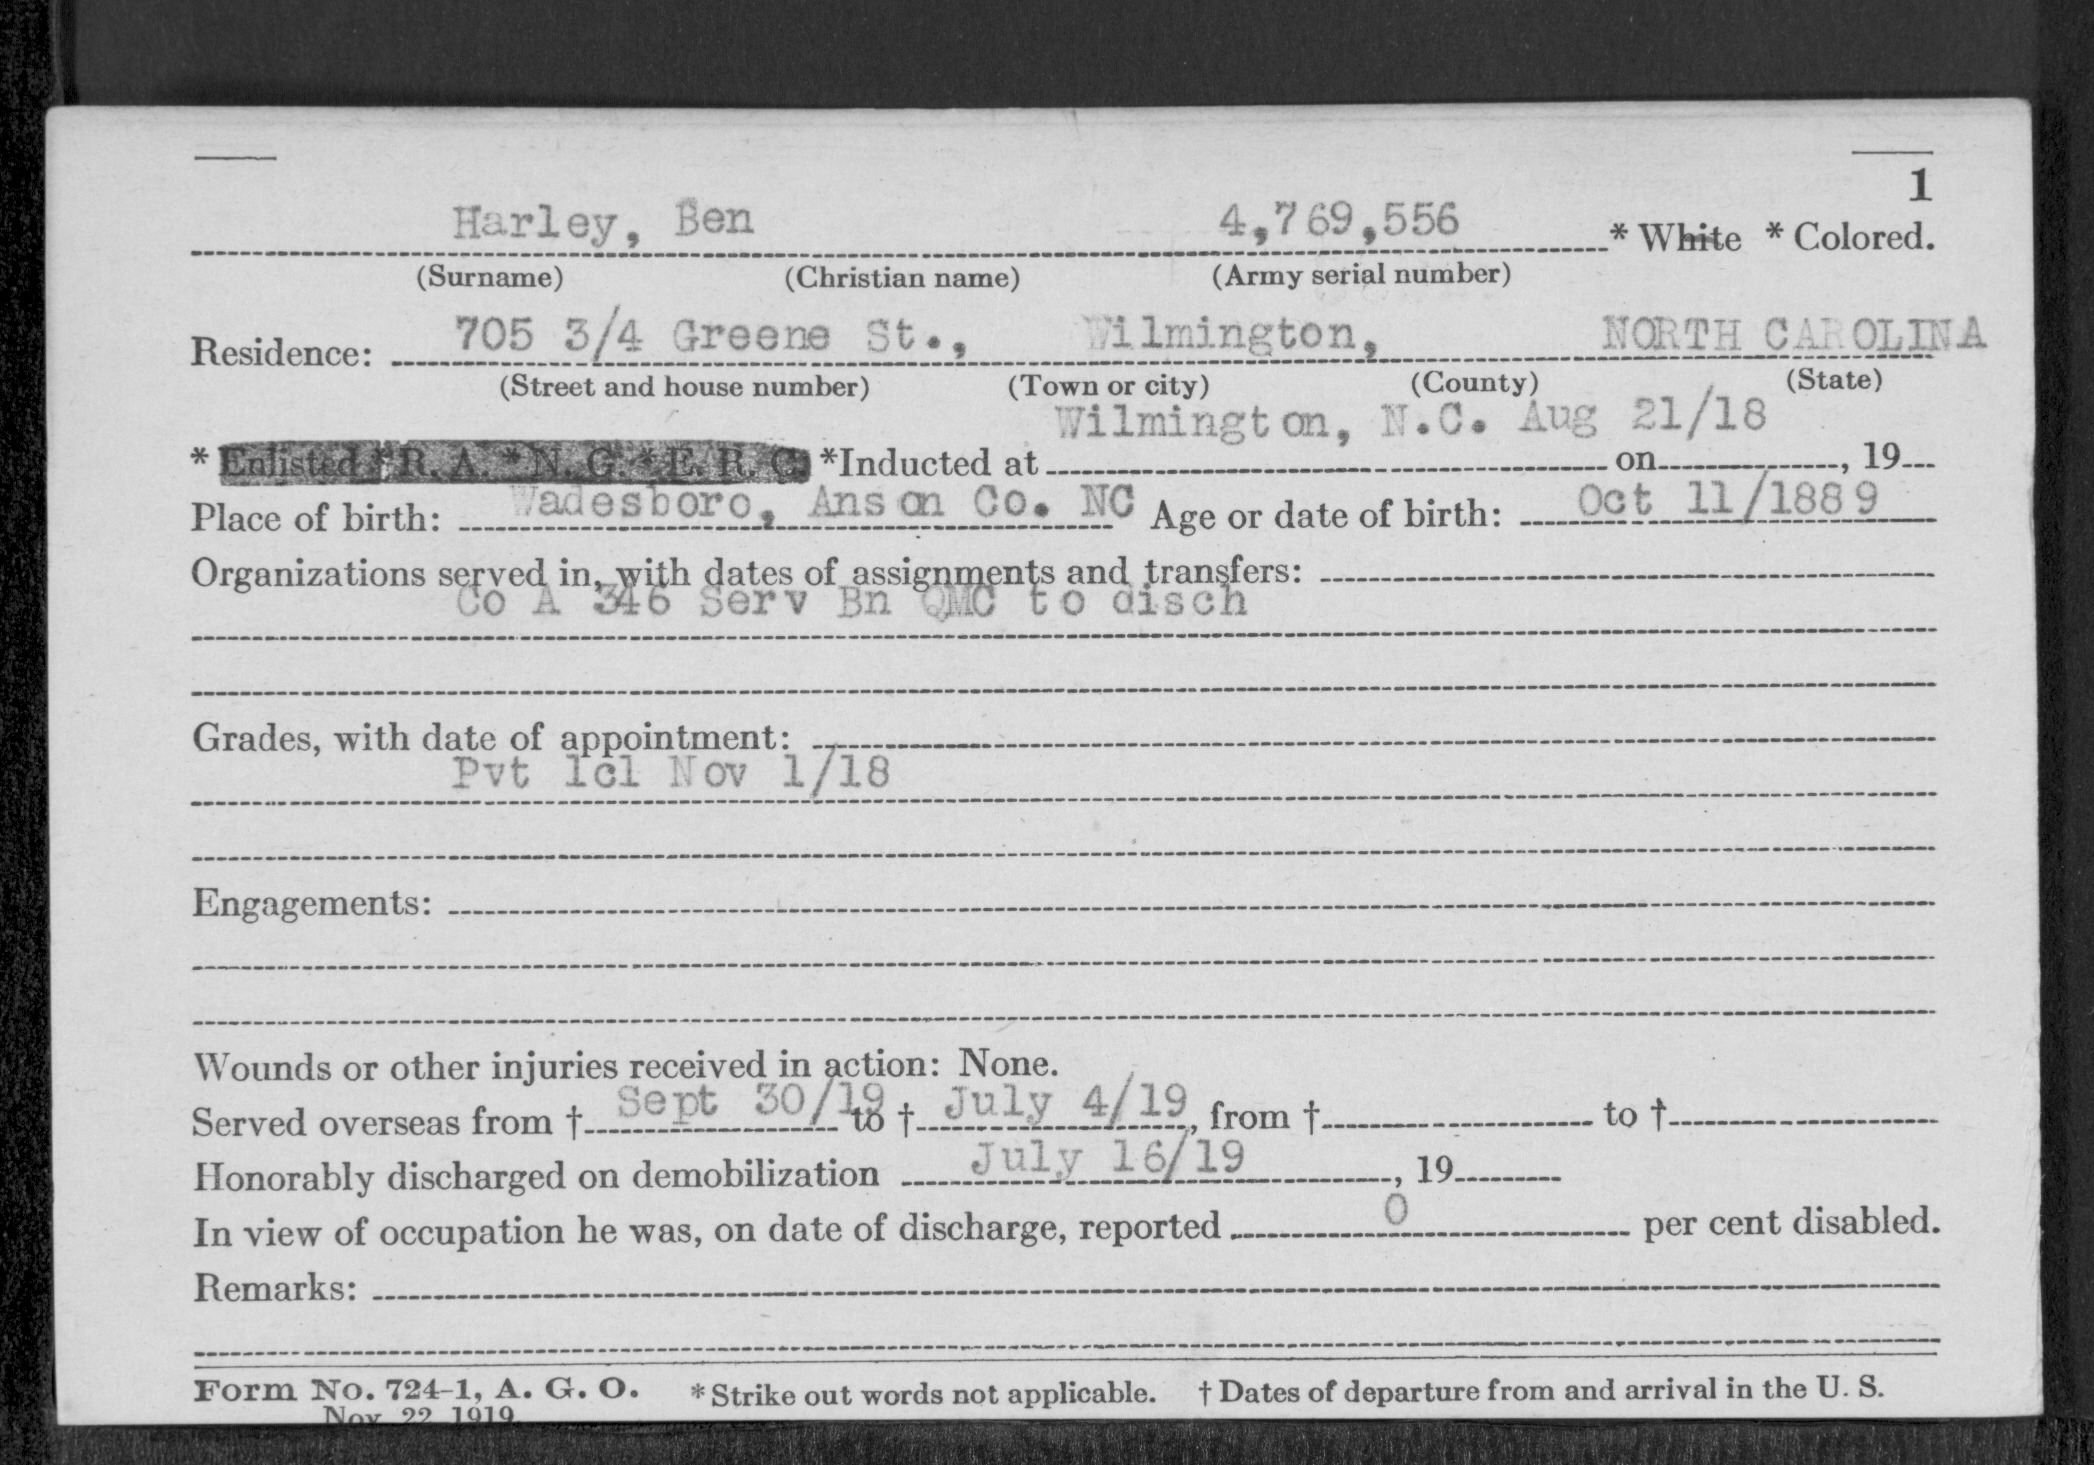 1
Harley, Ben 4,769,556 * White * Colored.
(Surname) (Christian name) (Army serial number)
705 3/4 Greene St., Wilmington, NORTH CAROLINA
Residence:
(Street and house number) (Town or city) (County) (State)
Wilmington, N.C. Aug 21/18
* Enlisted * R. A. * N. G. * E. R. C. *Inducted at on , 19
Place of birth: Wadesboro, Anson Co. NC Age or date of birth: Oct 11/1889
Organizations served in, with dates of assignments and transfers:
Co A 346 Serv Bn QMC to disch
Grades, with date of appointment:
Pvt 1cl Nov 1/18
Engagements:
Wounds or other injuries received in action: None.
Served overseas from † Sept 30/19 to † July 4/19, from † to †
Honorably discharged on demobilization July 16/19, 19
In view of occupation he was, on date of discharge, reported 0 per cent disabled.
Remarks:
Form No. 724-1, A. G. O. * Strike out words not applicable. † Dates of departure from and arrival in the U. S.
Nov. 22, 1919.